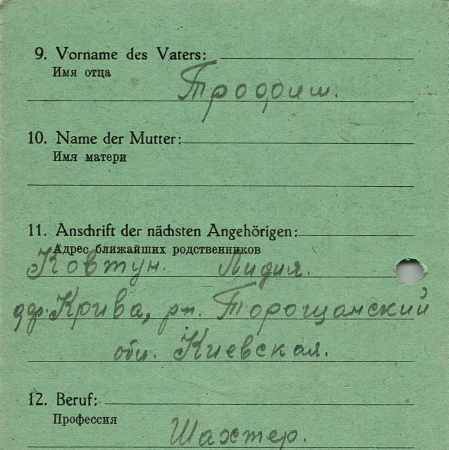 9. Vorname des Vaters:
Имя отца
Трофим.
10. Name der Mutter:
Имя матери
11. Anschrift der nächsten Angehörigen:
Адрес ближайших родственников
Ковтун. Лидия.
Крива, рн. Торощанский
обл. Киевская.
12. Beruf:
Профессия
Шахтер.